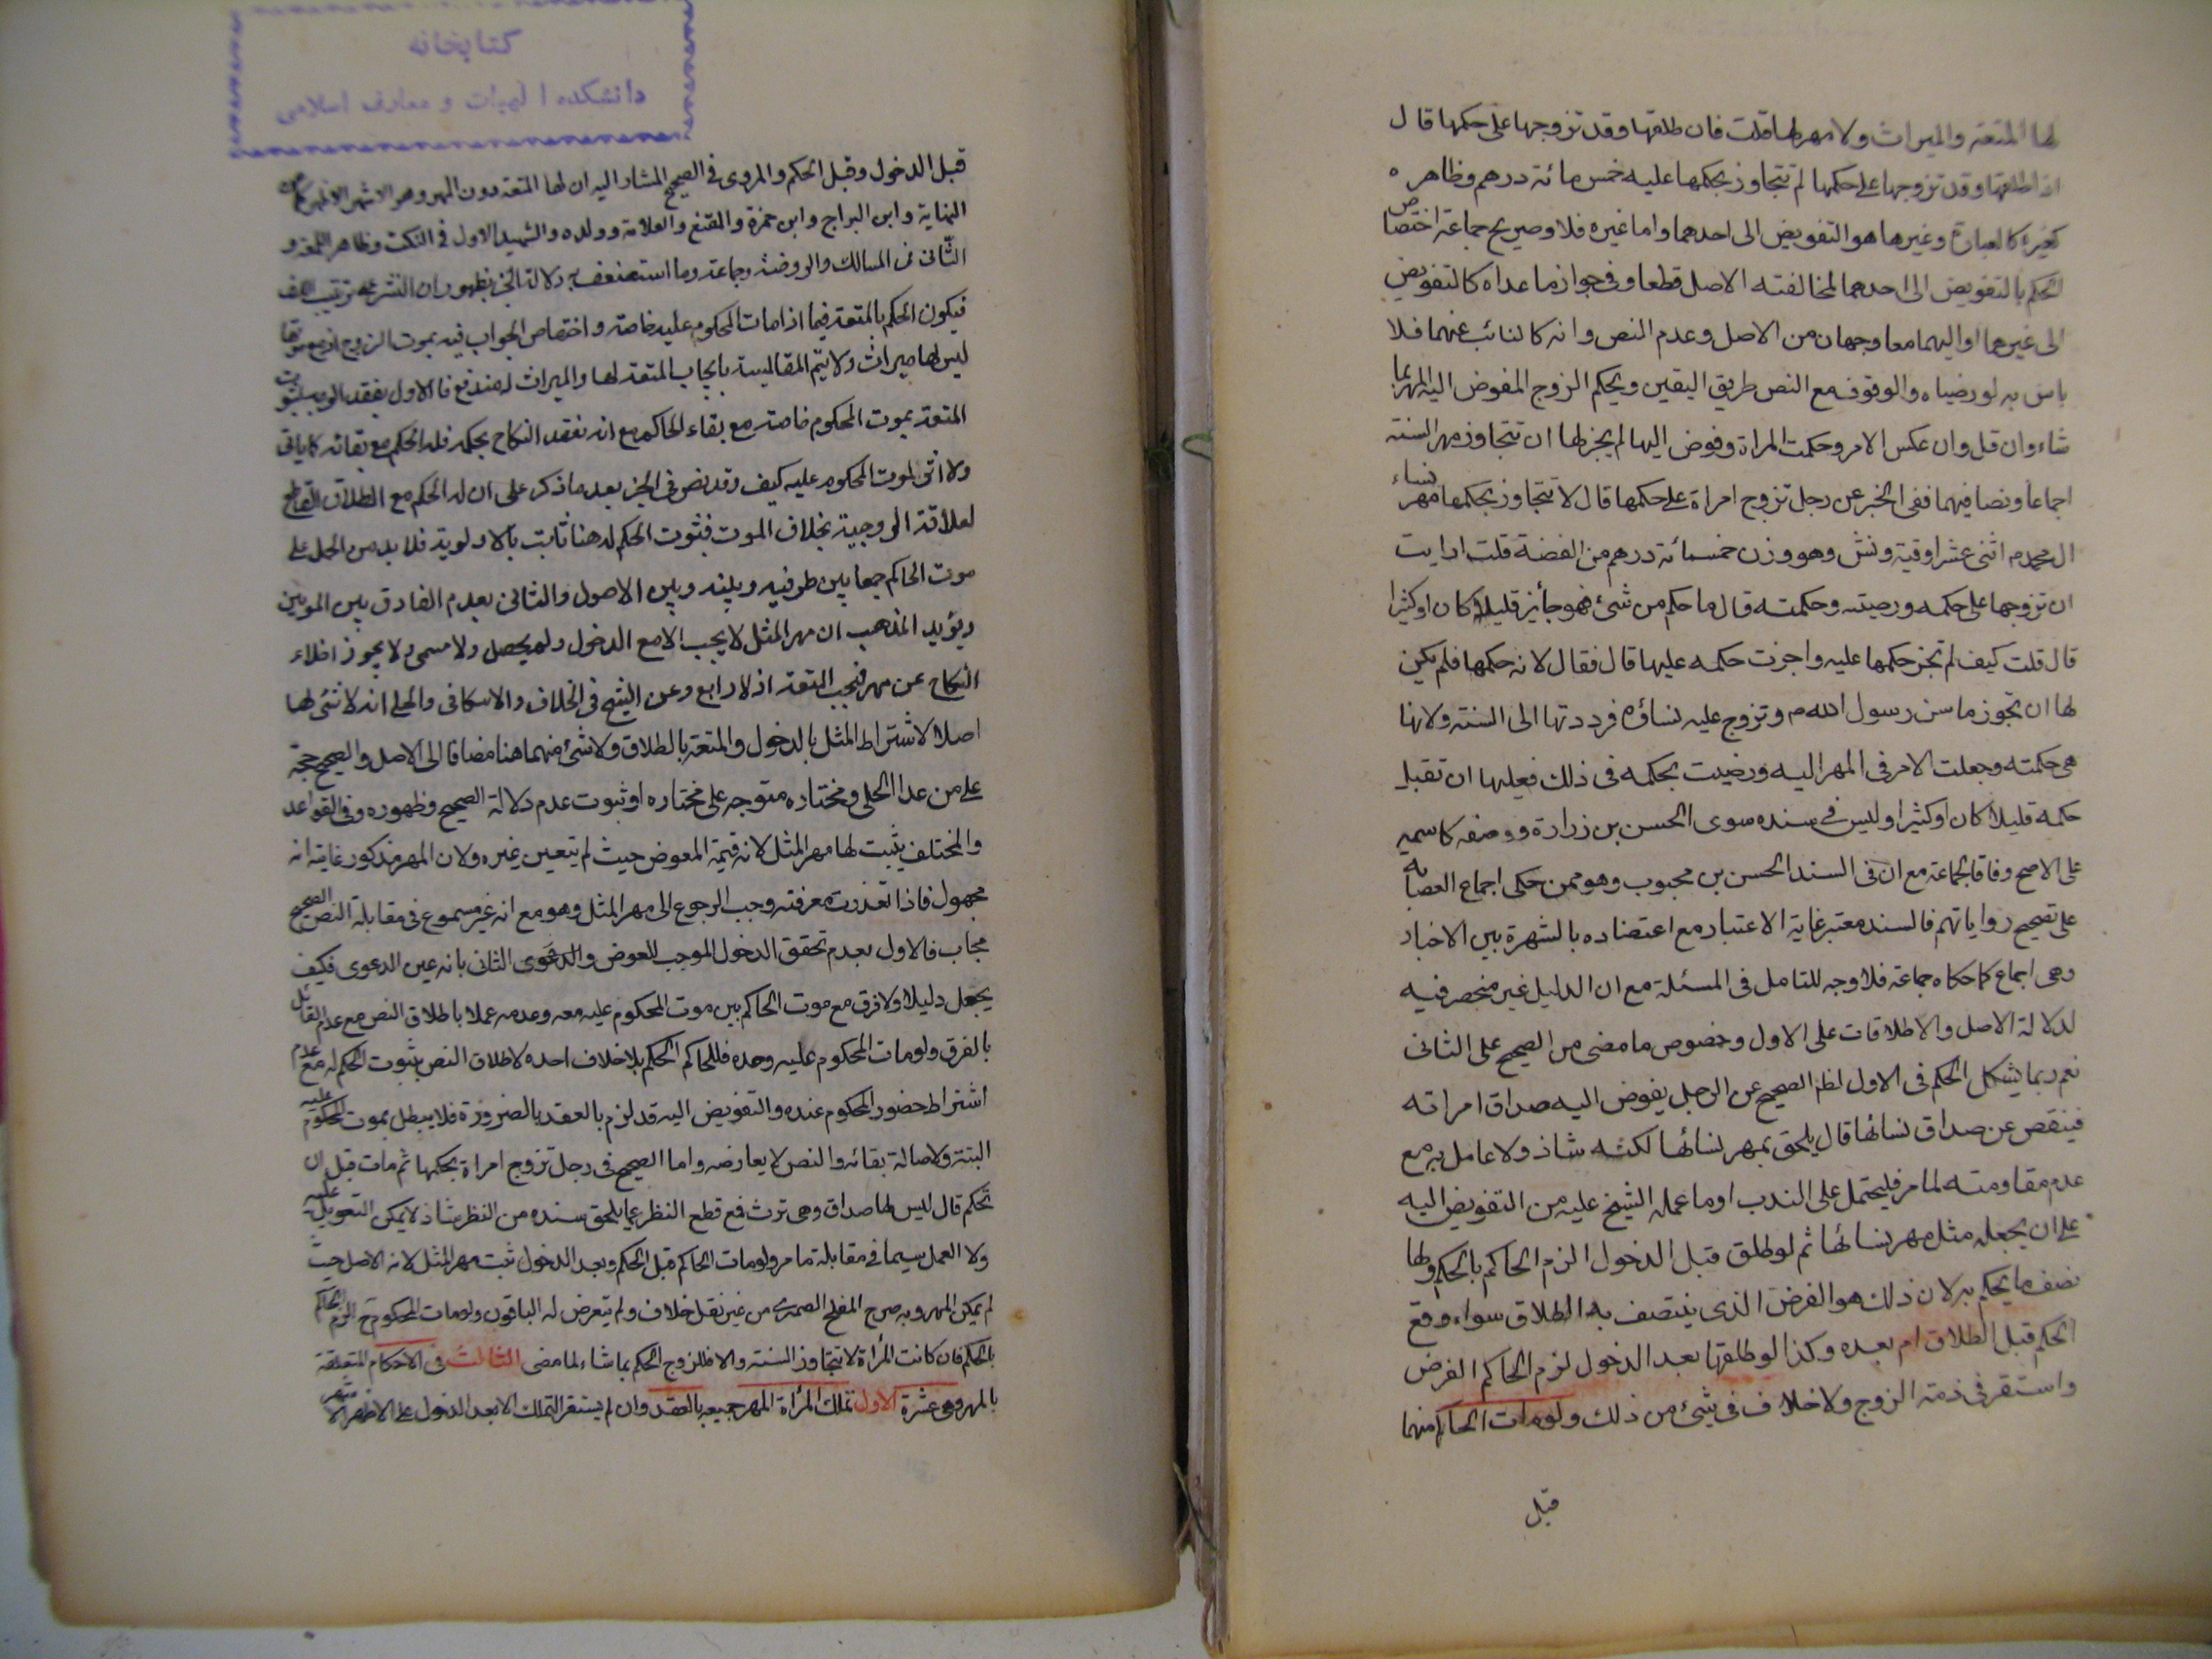 لها المتعة والميراث ولا مهر لها قلت فان طلقها وقد تزوجها على حكمها قال
اذا طلقها وقد تزوجها على حكمها لم تتجاوز بحكمها عليه خمس مائة درهم وظاهره
كغيره كالعبارة وغيرها هو التفويض الى احدهما واما غيره فلا وصريح جماعة اختصاص
الحكم بالتفويض الى احدهما لمخالفته الاصل قطعا وفي جواز ما عداه كالتفويض
الى غيرهما او اليهما معا وجهان من الاصل وعدم النص وانه كالنائب عنهما فلا
باس به لو رضياه والوقوف مع النص طريق اليقين ويحكم الزوج المفوض اليه المهر بما
شاء وان قل وان عكس الامر وحكمت المراة وفوض اليها لم يجز لها ان تتجاوز مهر السنة
اجماعا ونصا فيهما ففي الخبر عن رجل تزوج امراة على حكمها قال لا تتجاوز بحكمها مهر نساء
ال محمد م اثنى عشر اوقية ونش وهو وزن خمسمائة درهم من الفضة قلت ارايت
ان تزوجها على حكمه ورضيته وحكمته قال ما حكم من شئ فهو جائز قليلا كان او كثيرا
قال قلت كيف لم تجز حكمها عليه واجزت حكمه عليها قال فقال لانه حكمها فلم يكن
لها ان تجوز ما سن رسول الله م وتزوج عليه نساؤه فرددتها الى السنة ولانها
هي حكمته وجعلت الامر في المهر اليه ورضيت بحكمه في ذلك فعليها ان تقبل
حكمه قليلا كان او كثيرا وليس في سنده سوى الحسن بن زرارة ووصفه كاسميه
على الاصح وفاقا لجماعة مع ان في السند الحسن بن محبوب وهو ممن حكى اجماع العصابه
على تصحيح رواياتهم فالسند معتبر غاية الاعتبار مع اعتضاده بالشهرة بين الاخبار
وهي اجماع كما حكاه جماعة فلا وجه للتامل في المسئلة مع ان الدليل غير منحصر فيه
لدلالة الاصل والاطلاقات على الاول وخصوص ما مضى من الصحيح على الثانى
نعم ربما يشكل الحكم في الاول لظ الصحيح عن الرجل يفوض اليه صداق امراته
فينقص عن صداق نسائها قال يلحق بمهر نسائها لكنه شاذ ولا عامل به مع
عدم مقاومته لما مر فليحتمل على الندب او ما عمله الشيخ عليه من التفويض اليه
على ان يجعله مثل مهر نسائها ثم لو طلق قبل الدخول الزم الحاكم بالحكم ولها
نصف ما يحكم به لان ذلك هو الفرض الذى ينتصف به الطلاق سواء وقع
الحكم قبل الطلاق ام بعده وكذا لو طلقها بعد الدخول لزم الحاكم الفرض
واستقر في ذمة الزوج ولا خلاف في شئ من ذلك ولو مات الحاكم منهما
قبل
كتابخانه
دانشكده الهيات و معارف اسلامى
قبل الدخول وقبل الحكم والمروى في الصحيح المشار اليه ان لها المتعة دون المهر وهو الاشهر الاظهر كما عن
النهاية وابن البراج وابن حمزة والمقنع والعلامة وولده والشهيد الاول في النكت وظاهر اللمعة و
الثانى في المسالك والروضة وجماعة وما استضعف به دلالة الخبر بظهور ان النشر على ترتيب اللف
فيكون الحكم بالمتعة فيما اذا مات المحكوم عليه خاصة واختصاص الجواب فيه بموت الزوج اذ مع موتها
ليس لها ميراث ولا يتم المقالبسة بايجاب المتعة لها والميراث له مندفع فالاول بفقد الريب بثبوت
المتعة بموت المحكوم خاصة مع بقاء الحاكم مع انه نفقد النكاح بحكمه فله الحكم مع بقائه كما ياتى
ولا اثر لموت المحكوم عليه كيف وقد نص في الخبر بعد ما ذكر على ان له الحكم مع الطلاق القاطع
لعلاقة الزوجية بخلاف الموت فثبوت الحكم له هنا ثابت بالاولوية فلا بد من الحمل على
موت الحاكم جمعا بين طرفيه وبينه وبين الاصول والثانى بعدم الفارق بين الموتين
ويؤيد المذهب ان مهر المثل لا يجب الا مع الدخول ولم يحصل ولا مسمى ولا يجوز اخلاء
النكاح عن مهر فيجب المتعة اذ لا رابع وعن الشيخ في الخلاف والاسكافى والحلى انه لا شئ لها
اصلا لاشتراط المثل بالدخول والمتعة بالطلاق ولا شئ منهما هنا مضافا الى الاصل والصحيح حجة
على من عدا الحلى ومختاره متوجه على مختاره او ثبوت عدم دلالة الصحيح وظهوره وفي القواعد
والمختلف يثبت لها مهر المثل لانه قيمة المعوض حيث لم يتعين غيره ولان المهر مذكور غايته انه
مجهول فاذا تعذرت معرفته وجب الرجوع الى مهر المثل وهو مع انه غير مسموع في مقابلة النص الصحيح
مجاب فالاول بعدم تحقق الدخول الموجب للعوض والدعوى الثانى بانه عين الدعوى فكيف
يجعل دليلا ولا فرق مع موت الحاكم بين موت المحكوم عليه معه وعدمه عملا باطلاق النص مع عدم القائل
بالفرق ولو مات المحكوم عليه وحده فللحاكم الحكم بلا خلاف اجده لاطلاق النص بثبوت الحكم له مع عدم
اشتراط حضور المحكوم عنده والتفويض اليه قد لزم بالعقد بالضرورة فلا يبطل بموت المحكوم عليه
البتة ولاصالة بقائه والنص لا يعارضه واما الصحيح في رجل تزوج امراة بحكمها ثم مات قبل ان
تحكم قال ليس لها صداق وهي ترث فمع قطع النظر عما يلحق سنده من النظر شاذ لا يمكن التعويل عليه
ولا العمل سيما في مقابلة ما مر ولو مات الحاكم قبل الحكم وبعد الدخول ثبت مهر المثل لانه الاصل حيث
لم يمكن المهر وبه صرح المفلح الصمرى من غير نقل خلاف ولم يتعرض له الباقون ولو مات المحكوم ح الزم الحاكم
بالحكم فان كانت المرأة لا تتجاوز السنة والا فللزوج الحكم بما شاء لما مضى الثالث في الاحكام المتعلقة
بالمهر وهي عشرة الاول تملك المرأة المهر جميعه بالعقد وان لم يستقر التملك الا بعد الدخول على الاظهر الاشهر